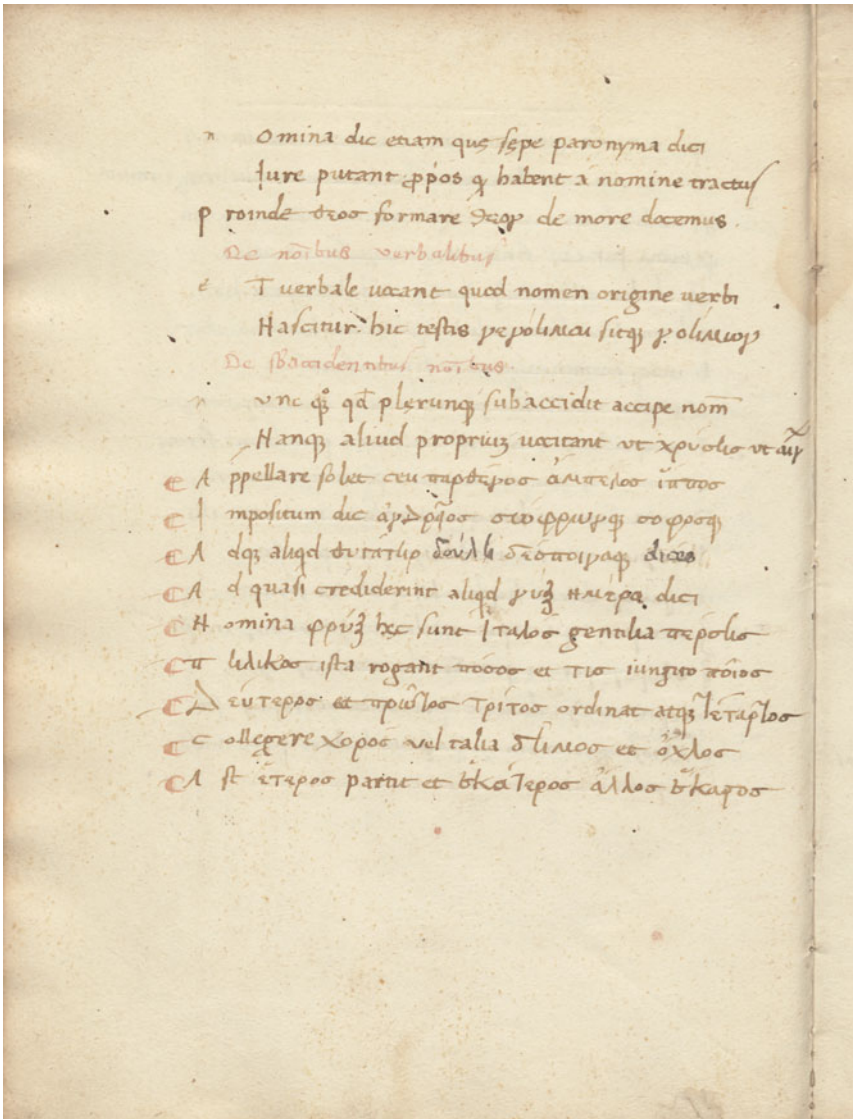 n Omina dic etiam quę sępe paronyma dici
Iure putant ꝓpos ꝙ habent a nomine tractus
P roinde θεοσ formare de more docemus.
De noĩbus verbalibus
e T verbale uocant quod nomen origine verbi
Nascitur. hic testis sitqꝫ
De sbaccidentibus noĩbus.
n vnc qd̃ plęrunqꝫ subaccidit accipe nom̃
Nanqꝫ aliud propriuꝫ uocitant vt χρύσησ vt
A ppellare solet ceu παρθένοσ ἄμπελοσ ἵπποσ
I mpositum dic
A dqꝫ aliqd θυγάτηρ δούλη dices
A d quasi crediderint aliqd νύξ ημέρα dici
N omina φρύξ hęc sunt ἰταλόσ gentilia πέρσησ
π ηλικοσ ista rogant πόσοσ et τισ iungito ποῖοσ
Δ εύτεροσ et πρῶτοσ τρίτοσ ordinat atqꝫ τέταρτοσ
C ollegere χορόσ vel talia δῆμοσ et ὄχλοσ
A st ἕτεροσ partit et ἑκάτεροσ ἄλλοσ ἕκαστοσ